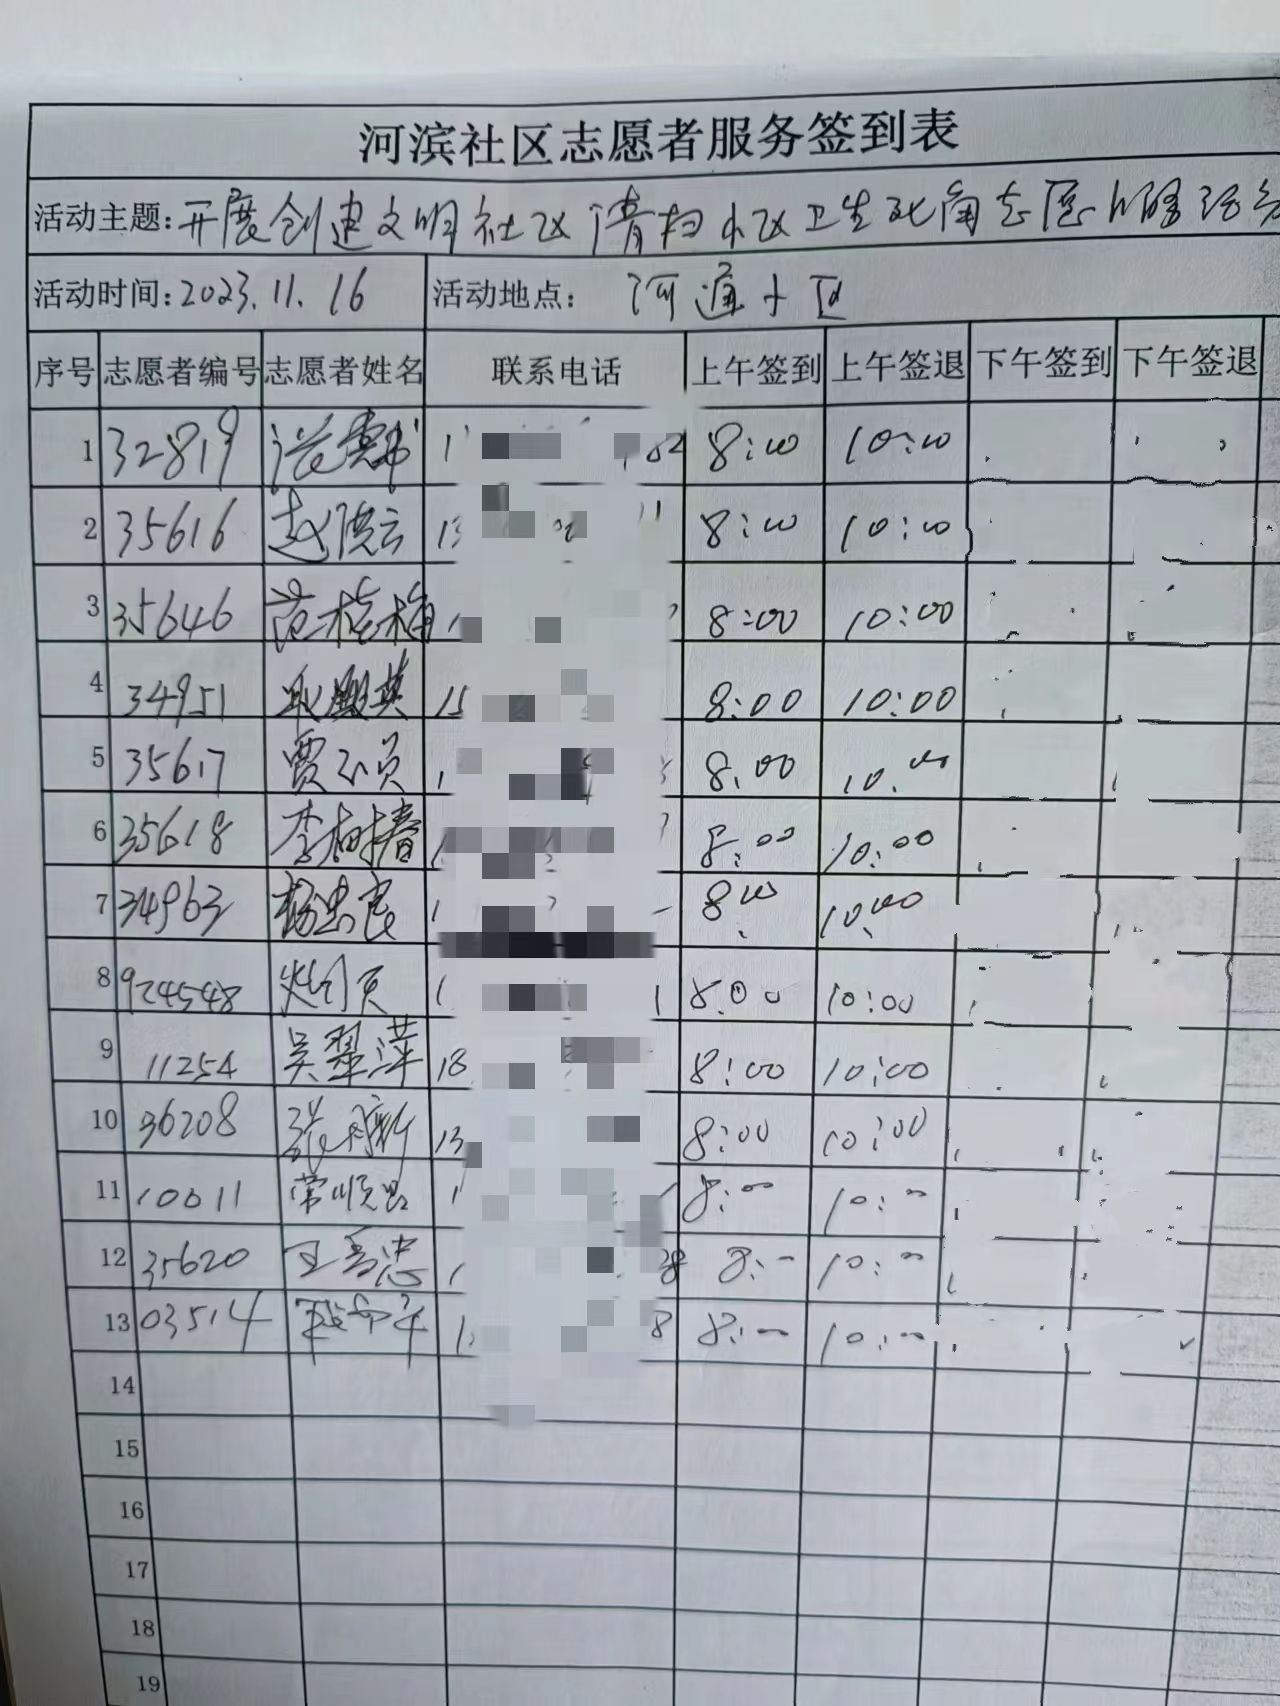 河滨社区志愿者服务签到表
活动主题: 开展创建文明社区清扫小区卫生死角志愿服务活动
活动时间: 2023.11.16 活动地点: 河通小区
序号 志愿者编号 志愿者姓名 联系电话 上午签到 上午签退 下午签到 下午签退
1 32819 8:00 10:00
2 35616 赵德云 13 8:00 10:00
3 35646 范桂梅 8:00 10:00
4 34951 15 8:00 10:00
5 35617 贾 8:00 10:00
6 35618 李树春 8:00 10:00
7 34963 杨忠良 8:00 10:00
8 924548 8:00 10:00
9 11254 吴翠萍 18 8:00 10:00
10 36208 张 新 13 8:00 10:00
11 10011 常顺 8:00 10:00
12 35620 王 忠 8:00 10:00
13 03514 8 8:00 10:00
14
15
16
17
18
19